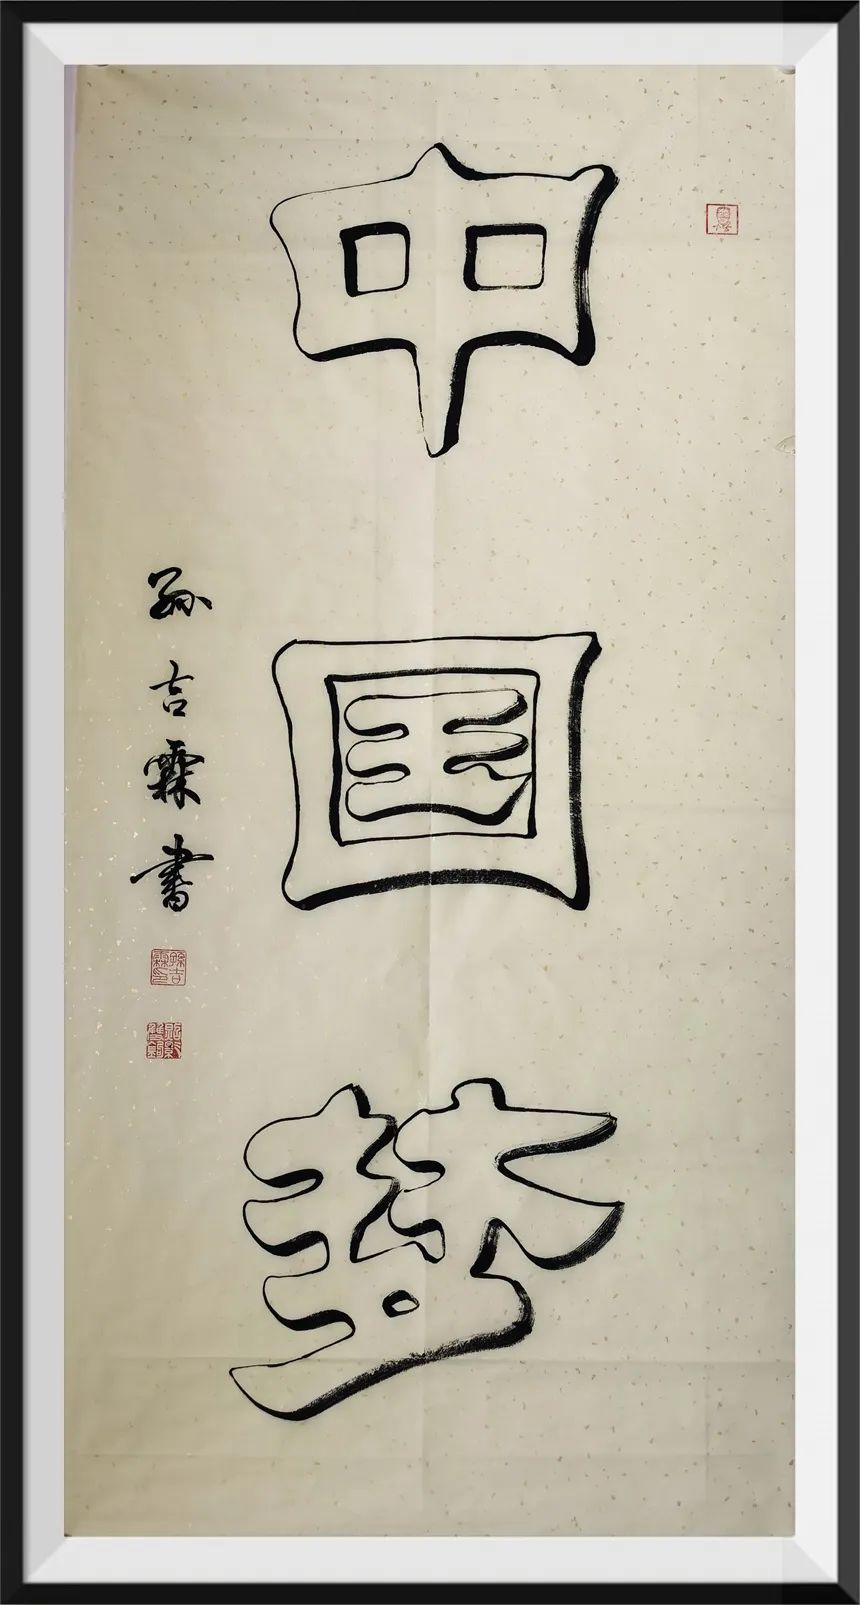 中国梦
孙吉霖书